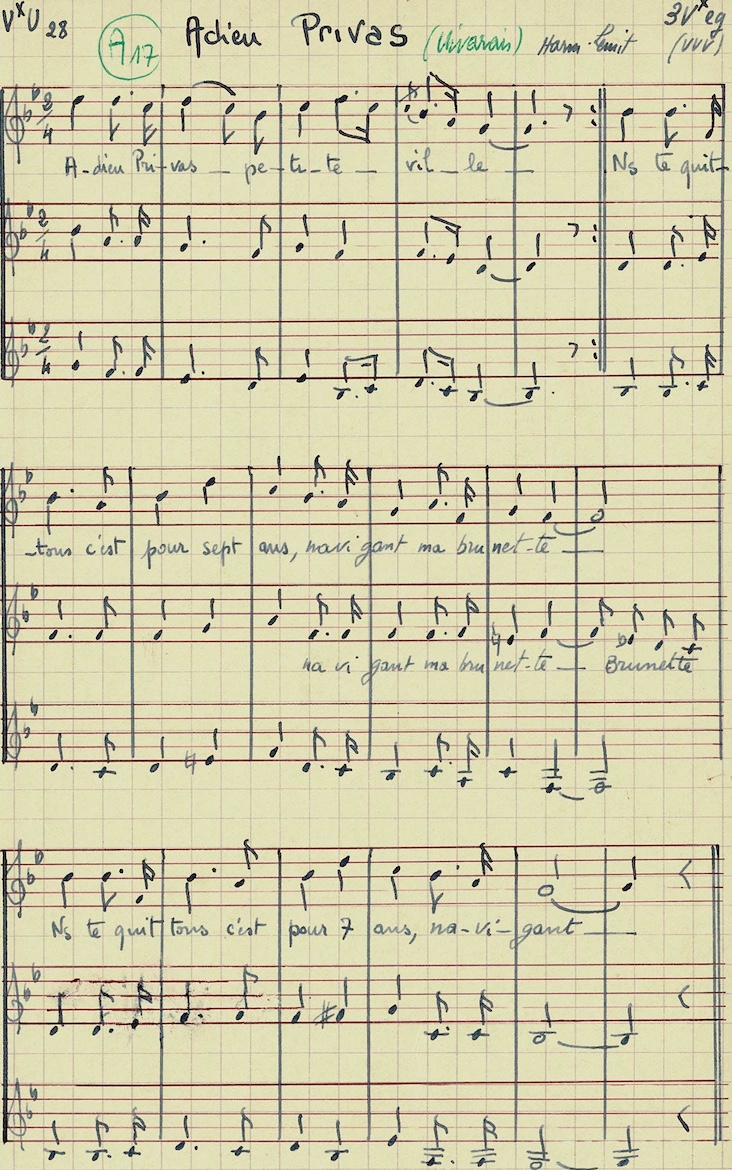 VxU 28
A17 Adieu Privas (Vivarais) Harm. 3Vx eg (VVV)
2/4
A-dieu Pri-vas - pe-ti-te - vil-le - Ns te quit-
2/4
2/4
-tons c'est pour sept ans, navigant ma brunet-te
na vi gant ma brunet-te Brunette
Ns te quit tons c'est pour 7 ans, na-vi-gant